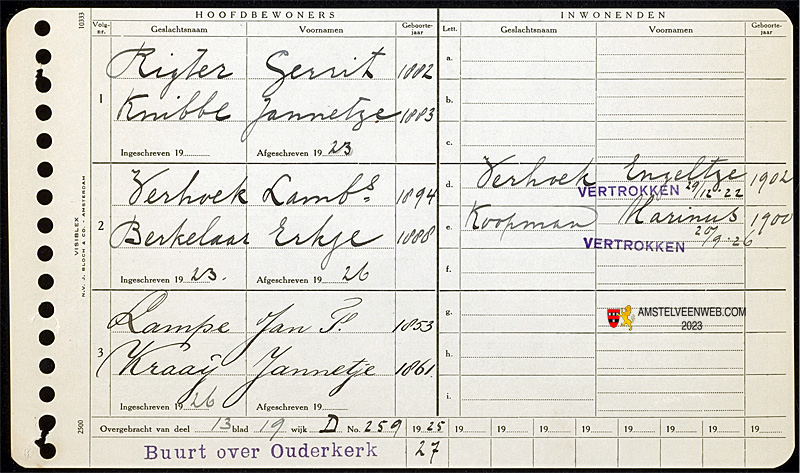 HOOFDBEWONERS INWONENDEN
Volg-nr. Geslachtsnaam Voornamen Geboorte-jaar Lett. Geslachtsnaam Voornamen Geboorte-jaar
10333
1 Rigter Gerrit 1882
Knibbe Jannetze 1883
Ingeschreven 19 Afgeschreven 19 23
a.
b.
c.
2 Verhoek Lambs. 1894
Berkelaar Erkje 1888
Ingeschreven 19 23. Afgeschreven 19 26
d. Verhoek Engeltze 1902
VERTROKKEN 29/12-22
e. Koopman Marinus 1900
VERTROKKEN 20/9-26
f.
3 Lampe Jan P. 1853
Kraaij Jannetje 1861.
Ingeschreven 19 26 Afgeschreven 19
g.
h.
i.
AMSTELVEENWEB.COM
2023
VISIBLEX
N.V. J. BLOCH & CO. - AMSTERDAM
2500
Overgebracht van deel 13 blad 19 wijk D No. 259 19 25 19 19 19 19 19 19 19 19
Buurt over Ouderkerk 27